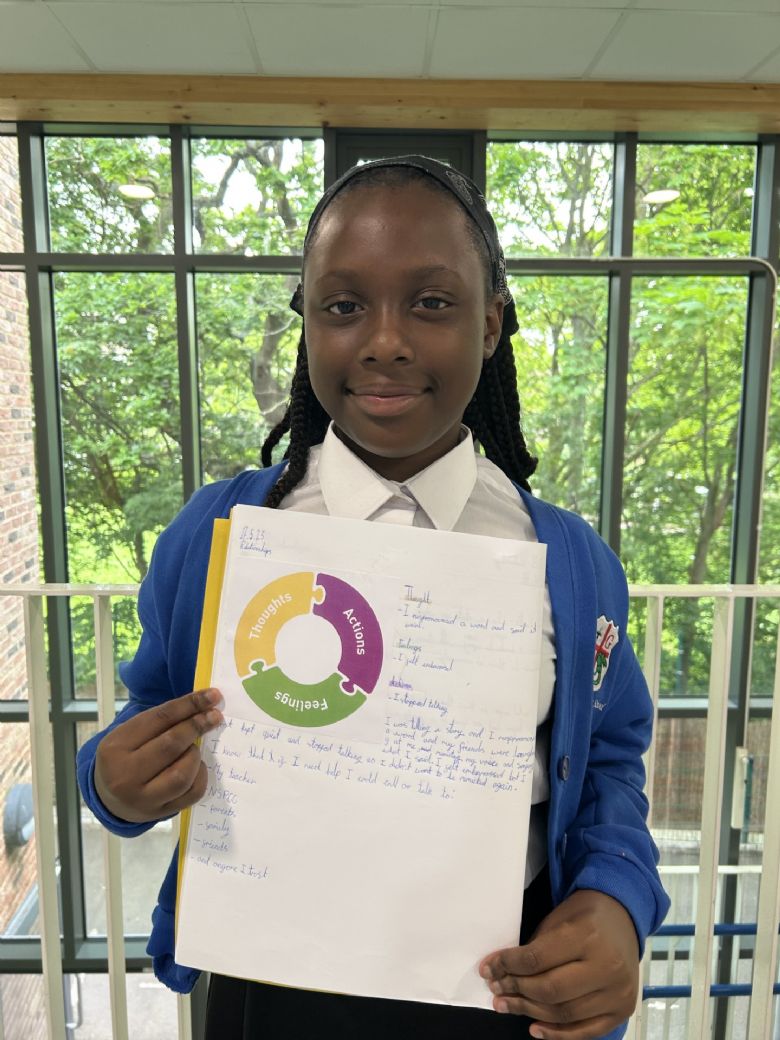 Relationships
Thoughts
Actions
Feelings
Thought
- I mispronounced a word and said it
Feelings
- I felt embarrassed
- I stopped talking
I was telling a story and I mispronounced
a word and my friends were laughing
at me and my voice and
what I said. I felt embarrassed but I
just kept quiet and stopped talking so I didn't want to be again.
I know that if I need help I could call or talk to:
- My teacher
- NSPCC
- parents
- family
- friends
- and anyone I trust